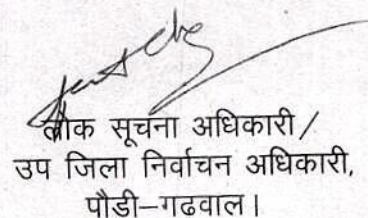 लोक सूचना अधिकारी/
उप जिला निर्वाचन अधिकारी,
पौडी–गढवाल।